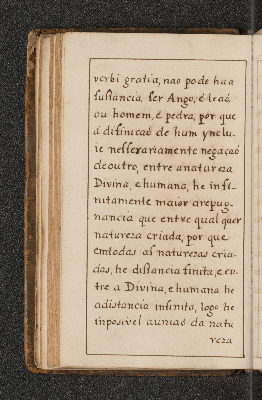 verbi gratia, nao pode hua
sustancia, ser Anjo, é leaó
ou homem, é pedra, por que
á difiniçaó de hum ynclu-
ie nesserariamente negaçaó
de outro, entre anatureza
Divina, e humana, he infi-
nitamente maior arepug-
nancia que entre qual quer
natureza criada, por que
emtodas as naturezas cria-
das, he distancia finita, e en-
tre a Divina, e humana he
adistancia infinita, logo he
inposivel auniaó da natu
reza